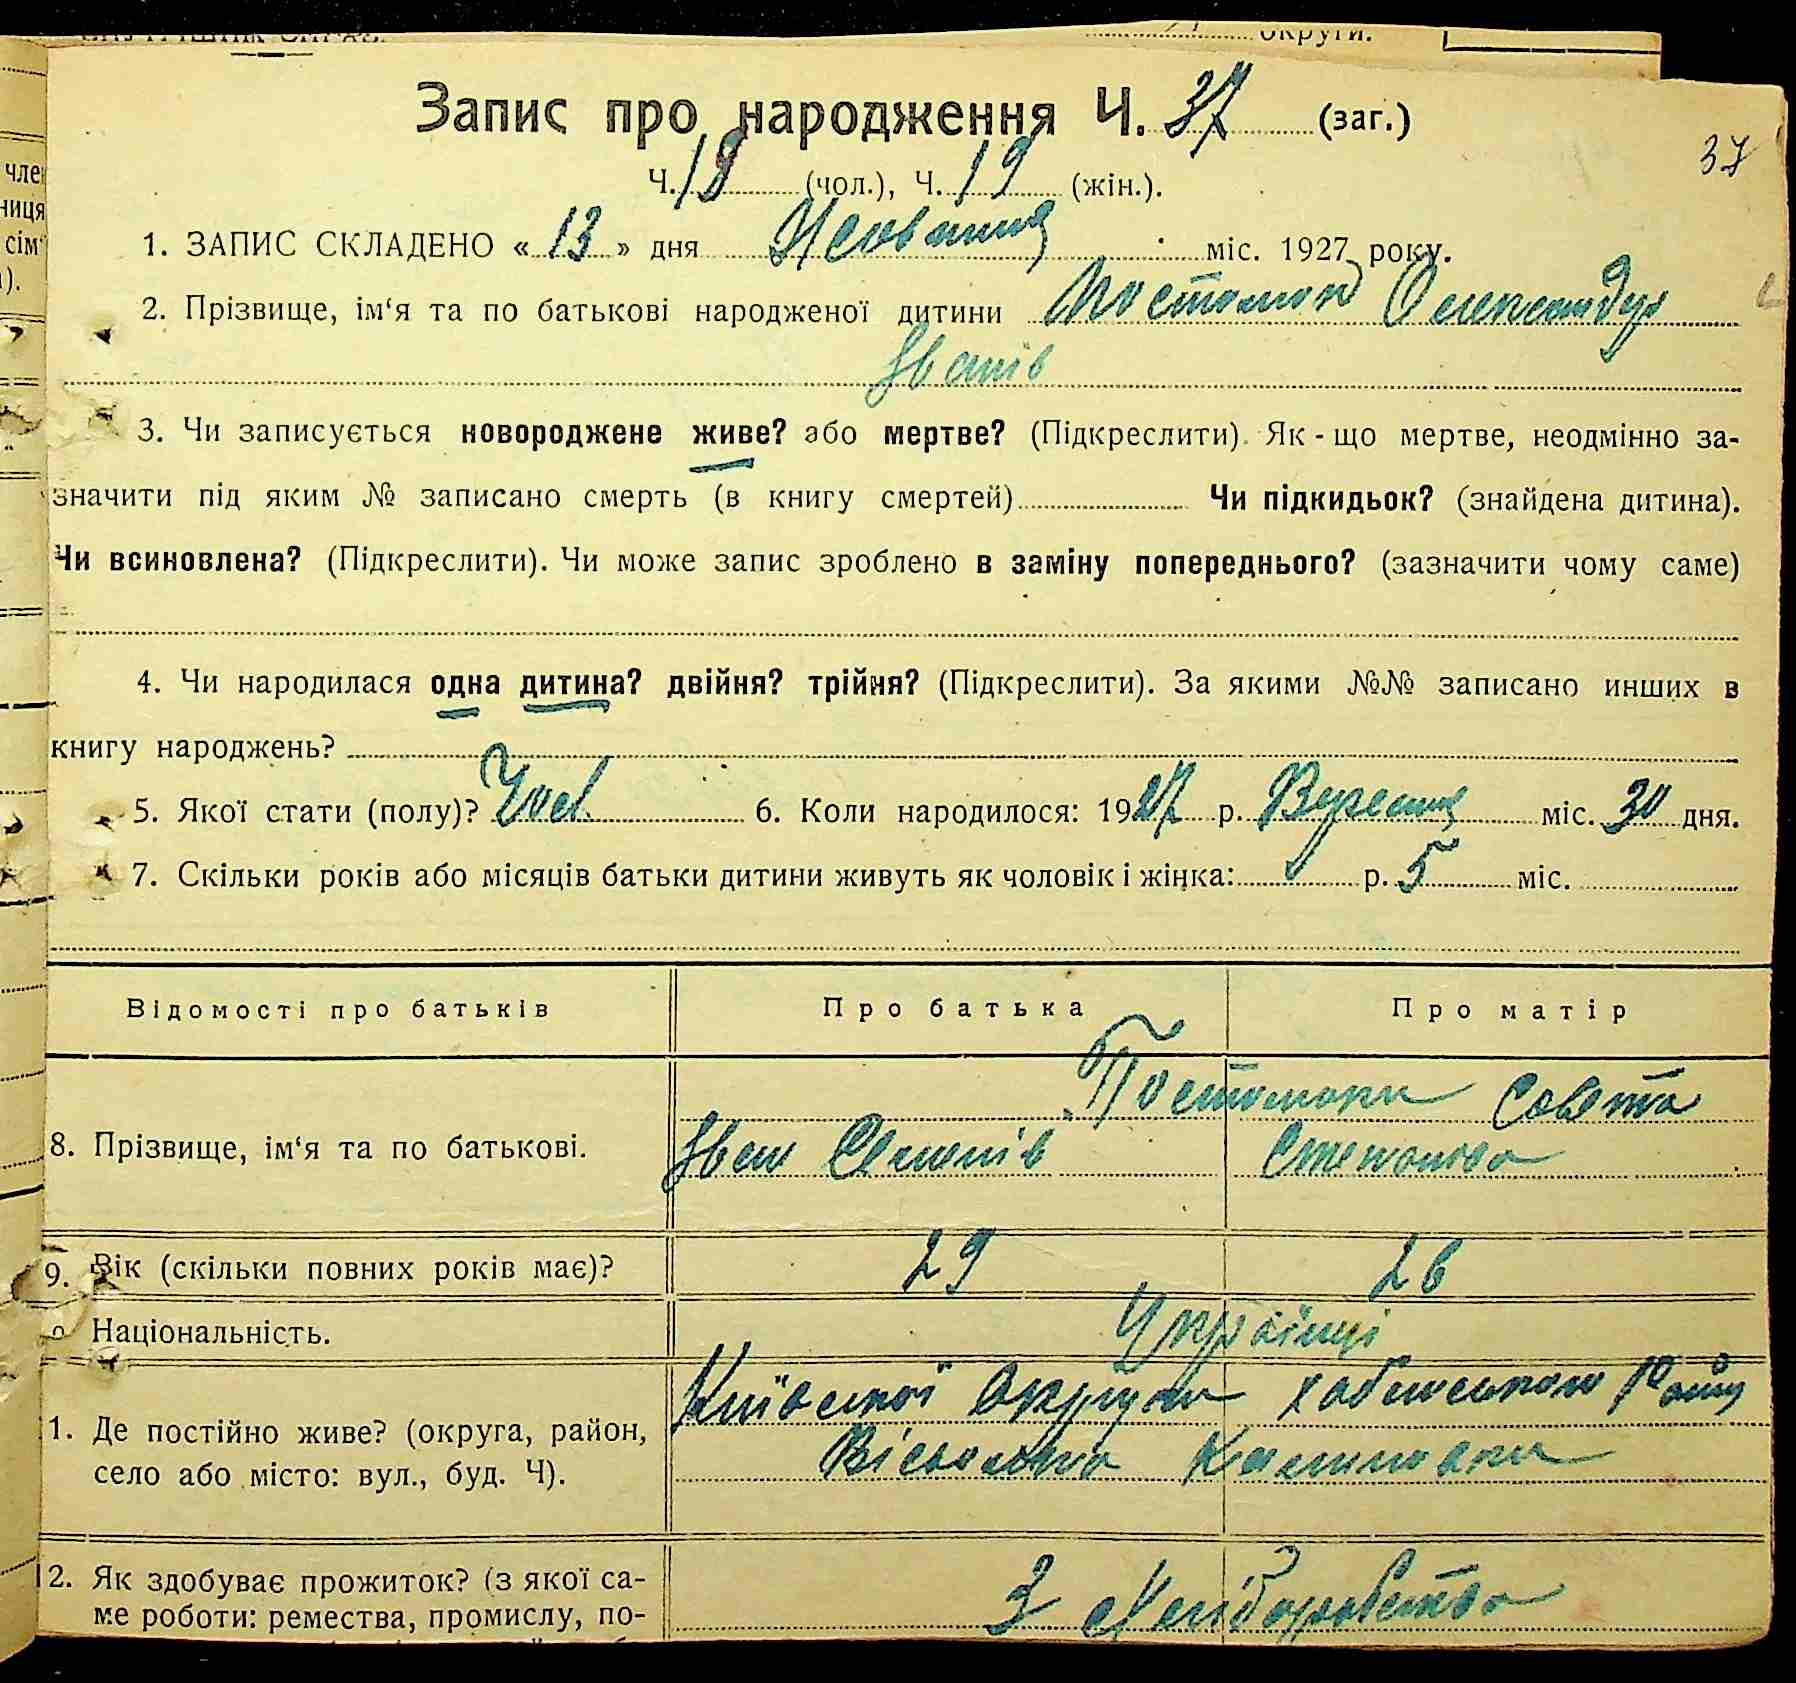 округи.
Запис про народження Ч. 37 (заг.)
37
Ч. 18 (чол.), Ч. 19 (жін.).
1. ЗАПИС СКЛАДЕНО « 13 » дня Жовтня міс. 1927 року.
2. Прізвище, ім‘я та по батькові народженої дитини Олександр
Іванів
3. Чи записується новороджене живе? або мертве? (Підкреслити). Як-що мертве, неодмінно за-
значити під яким № записано смерть (в книгу смертей) Чи підкидьок? (знайдена дитина).
Чи всиновлена? (Підкреслити). Чи може запис зроблено в заміну попереднього? (зазначити чому саме)
4. Чи народилася одна дитина? двійня? трійня? (Підкреслити). За якими №№ записано инших в
книгу народжень?
5. Якої стати (полу)? Чол. 6. Коли народилося: 1927 р. Вересня міс. 30 дня.
7. Скільки років або місяців батьки дитини живуть як чоловік і жінка: р. 5 міс.
Відомості про батьків Про батька Про матір
8. Прізвище, ім‘я та по батькові.
Іван Семенів Степанова
9. Вік (скільки повних років має)? 29 26
Національність. Українці
1. Де постійно живе? (округа, район,
село або місто: вул., буд. Ч).
Київської Округи Хабенського Району
2. Як здобуває прожиток? (з якої са-
ме роботи: ремества, промислу, по-
З Хліборобства